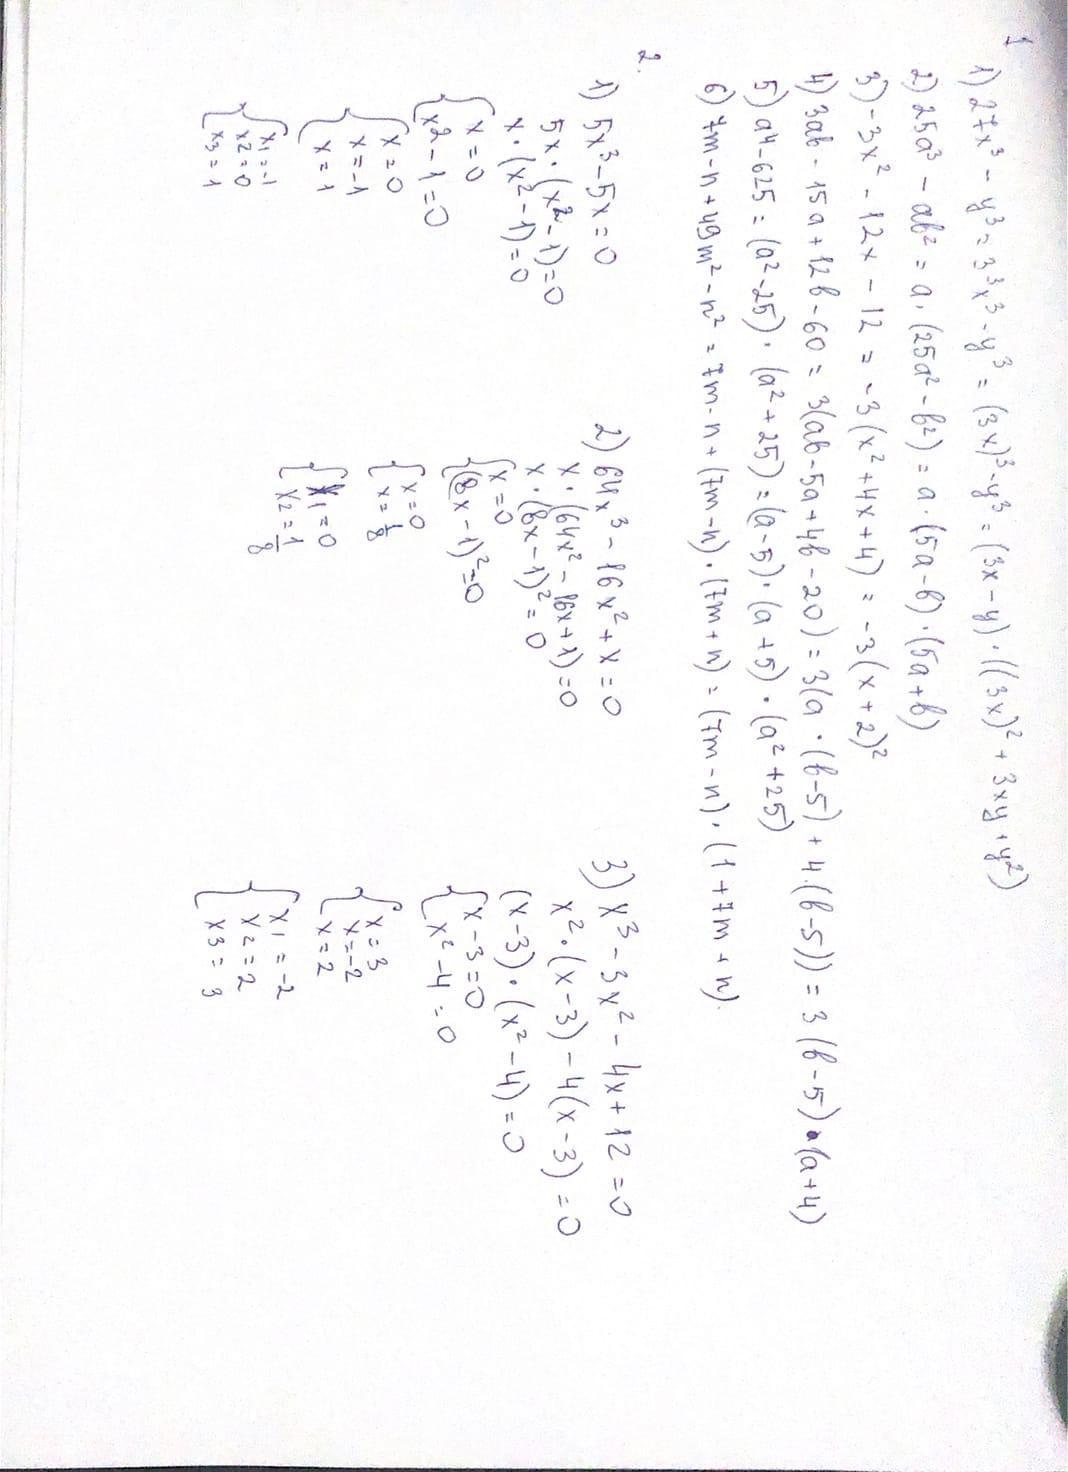 1
1) 27x³ - y³ = 3³x³ - y³ = (3x)³ - y³ = (3x - y) · ((3x)² + 3xy + y²)
2) 25a³ - ab² = a · (25a² - b²) = a · (5a - b) · (5a + b)
3) -3x² - 12x - 12 = -3(x² + 4x + 4) = -3(x + 2)²
4) 3ab - 15a + 12b - 60 = 3(ab - 5a + 4b - 20) = 3(a · (b - 5) + 4 · (b - 5)) = 3(b - 5) · (a + 4)
5) a⁴ - 625 = (a² - 25) · (a² + 25) = (a - 5) · (a + 5) · (a² + 25)
6) 7m - n + 49m² - n² = 7m - n + (7m - n) · (7m + n) = (7m - n) · (1 + 7m + n).
2.
1) 5x³ - 5x = 0
5x · (x² - 1) = 0
x · (x² - 1) = 0
{ x = 0
x² - 1 = 0
{ x = 0
x = -1
x = 1
{ x1 = -1
x2 = 0
x3 = 1
2) 64x³ - 16x² + x = 0
x · (64x² - 16x + 1) = 0
x · (8x - 1)² = 0
{ x = 0
(8x - 1)² = 0
{ x = 0
x = 1/8
{ x1 = 0
x2 = 1/8
3) x³ - 3x² - 4x + 12 = 0
x² · (x - 3) - 4(x - 3) = 0
(x - 3) · (x² - 4) = 0
{ x - 3 = 0
x² - 4 = 0
{ x = 3
x = -2
x = 2
{ x1 = -2
x2 = 2
x3 = 3